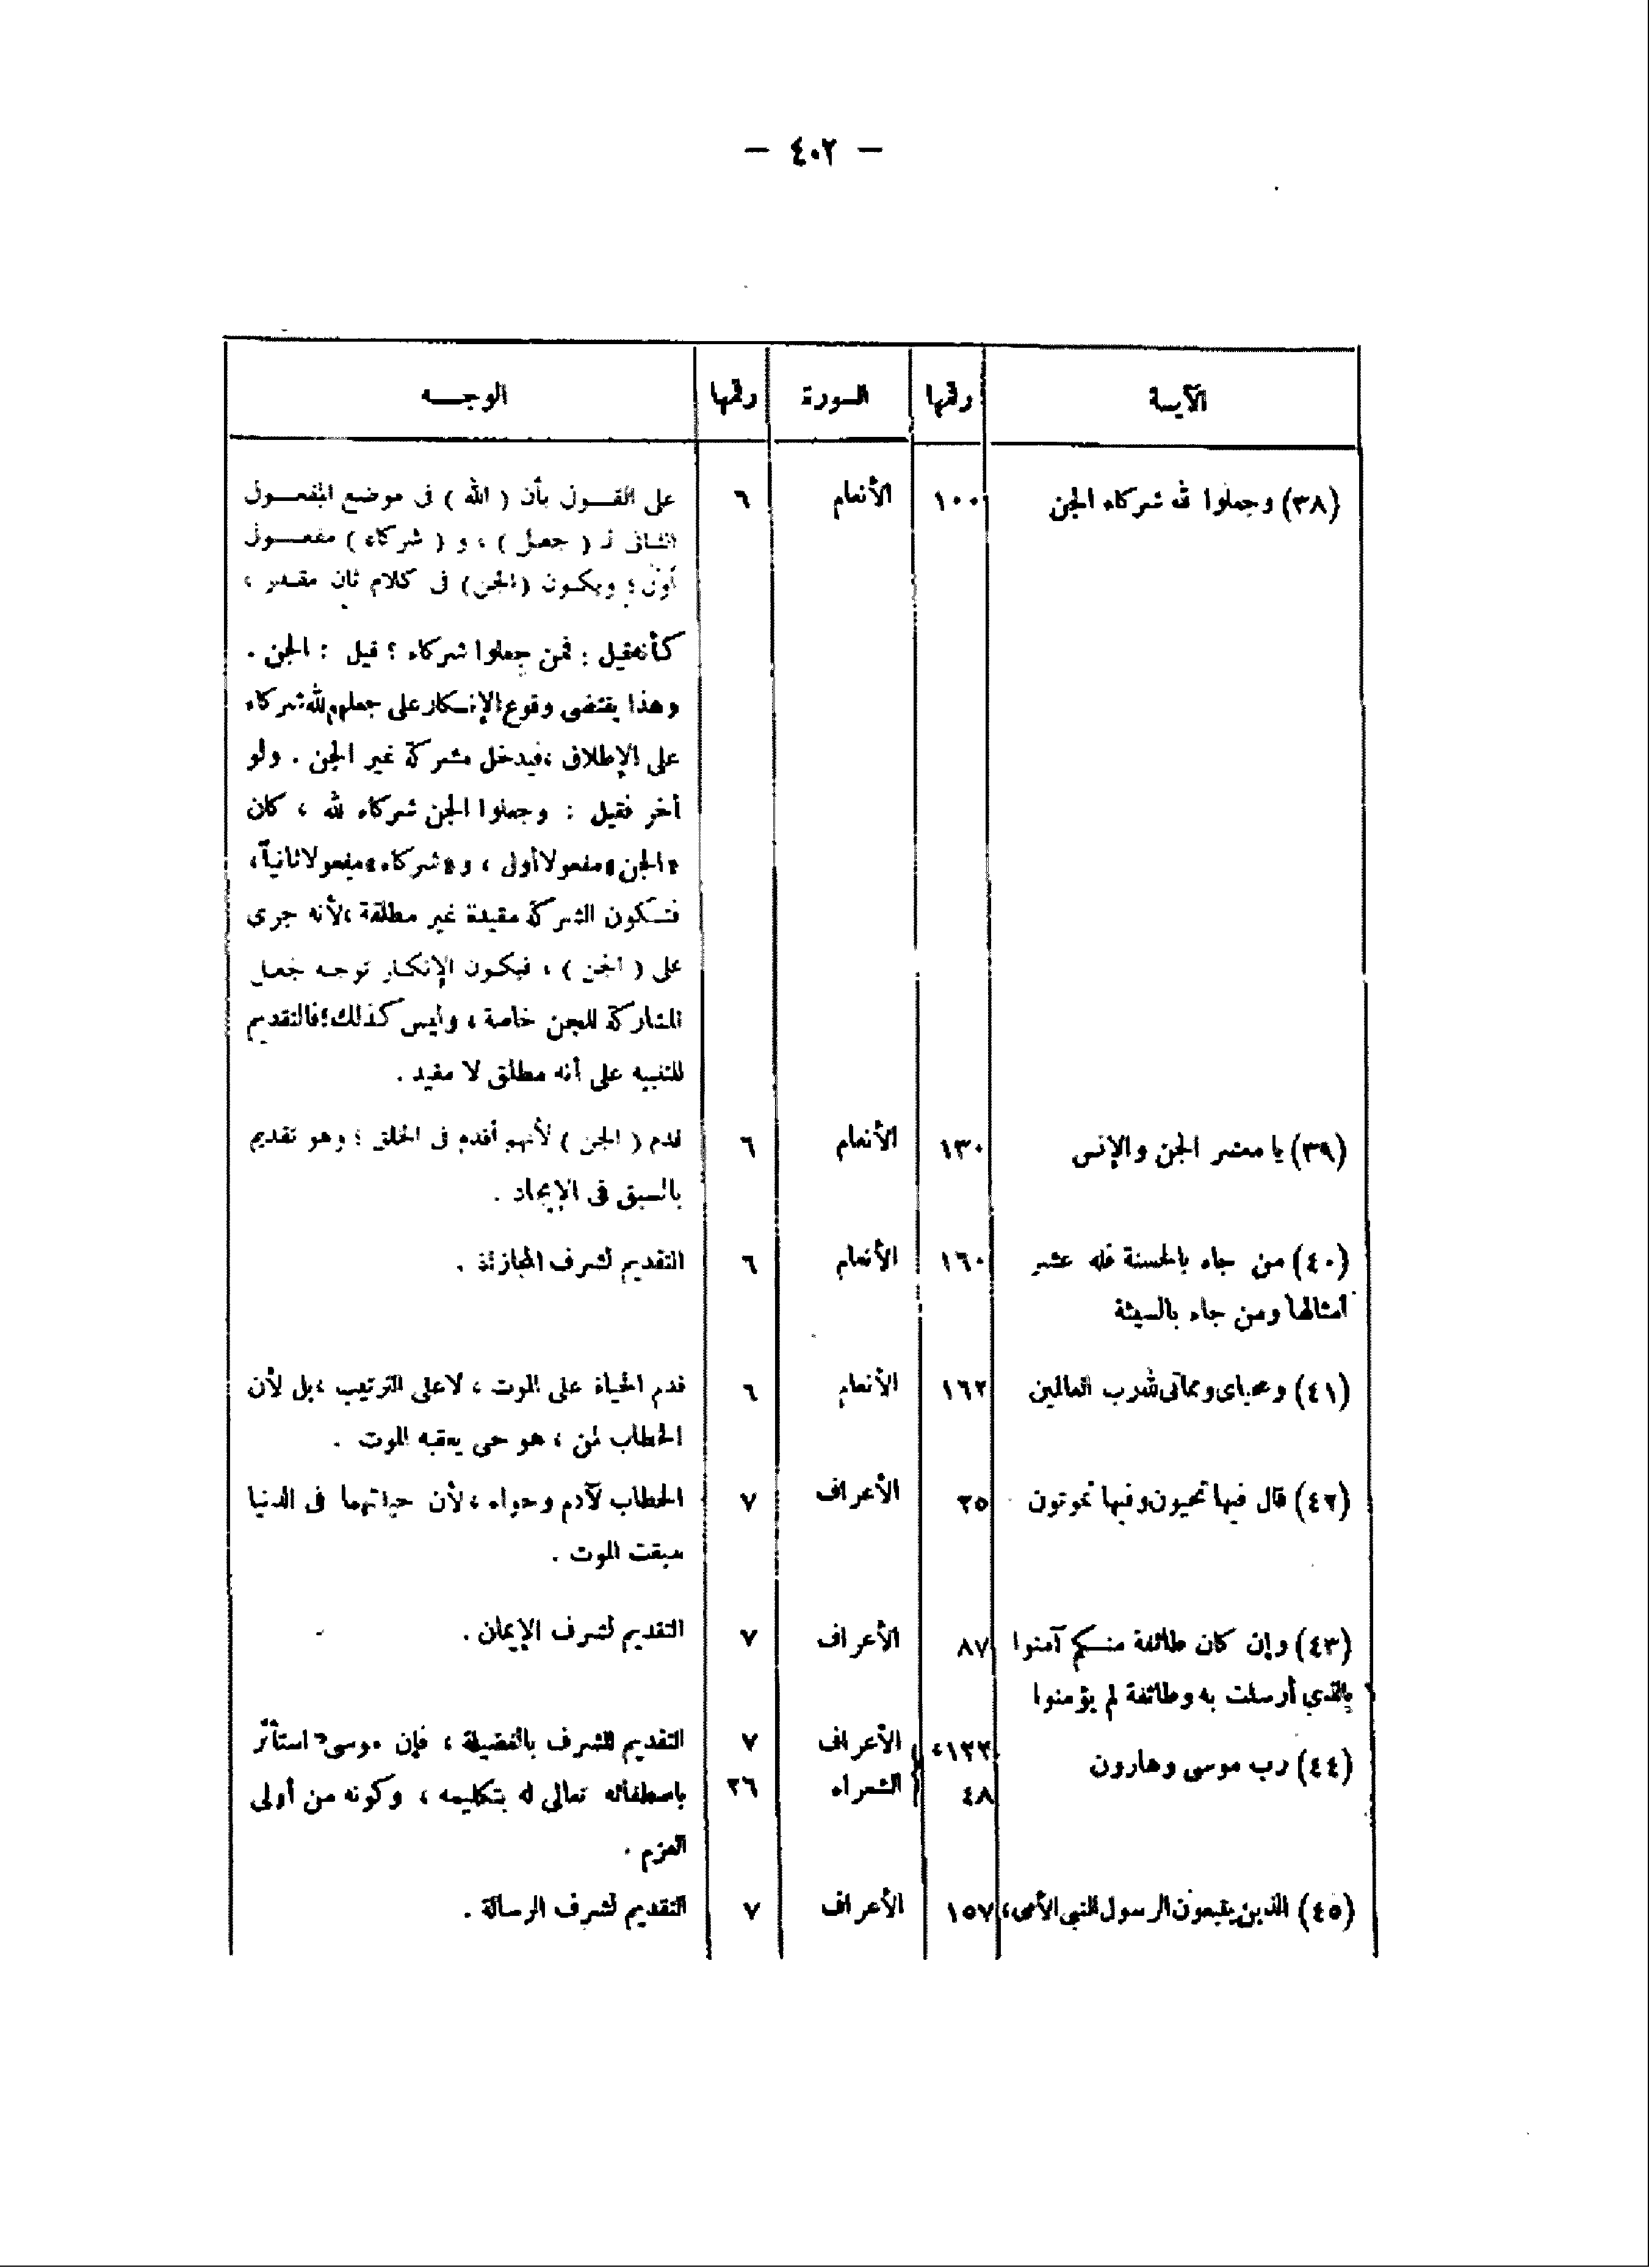 — ٤٠٢ —
الآيسة رقمها السورة رقمها الوجـــه
(٣٨) وجعلوا لله شركاء الجن ١٠٠ الأنعام ٦ على القــول بأن ( الله ) فى موضع المفعــول
الثانى لـ ( جعل ) ، و ( شركاء ) مفعــول
أول؛ ويكـون (الجن) فى كلام ثان مقـدر ،
كأنه قيل : فمن جعلوا شركاء ؟ قيل : الجن .
وهذا يقتضى وقوع الإنـكار على جعلهم لله شركاء
على الإطلاق ،فيدخل مشركة غير الجن . ولو
أخر فقيل : وجعلوا الجن شركاء لله ، كان
«الجن» مفعولا أول ، و«شركاء» مفعولا ثانياً،
فتـكون الشركة مقيدة غير مطلقة ،لأنه جرى
على ( الجن ) ، فيكـون الإنكـار توجـه لجعـل
المشاركة للجن خاصة ، وليس كذلك؛ فالتقديم
للتنبيه على أنه مطلق لا مقيد .
(٣٩) يا معشر الجن والإنس ١٣٠ الأنعام ٦ قدم ( الجن ) لأنهم أقدم فى الخلق ؛ وهو تقديم
بالسبق فى الإيجاد .
(٤٠) من جاء بالحسنة فله عشر ١٦٠ الأنعام ٦ التقديم لشرف المجازئة .
أمثالها ومن جاء بالسيئة
(٤١) ومحياى ومماتى لله رب العالمين ١٦٢ الأنعام ٦ قدم الحياة على الموت ، لا على الترتيب ،بل لأن
الخطاب لمن ، هو حى يعقبه الموت .
(٤٢) قال فيها تحيون وفيها تموتون ٢٥ الأعراف ٧ الخطاب لآدم وحواء ،لأن حياتهما فى الدنيا
سبقت الموت .
(٤٣) وإن كان طائفة منـكم آمنوا ٨٧ الأعراف ٧ التقديم لشرف الإيمان .
بالذي أرسلت به وطائفة لم يؤمنوا
(٤٤) رب موسى وهارون ١٢٢، الأعراف ٧ التقديم للشرف بالفضيلة ، فإن موسى استأثر
٤٨ الشعراء ٢٦ باصطفائه تعالى له بتكليمه ، وكونه من أولى
العزم .
(٤٥) الذين يتبعون الرسول النبى الأمى، ١٥٧ الأعراف ٧ التقديم لشرف الرسالة .